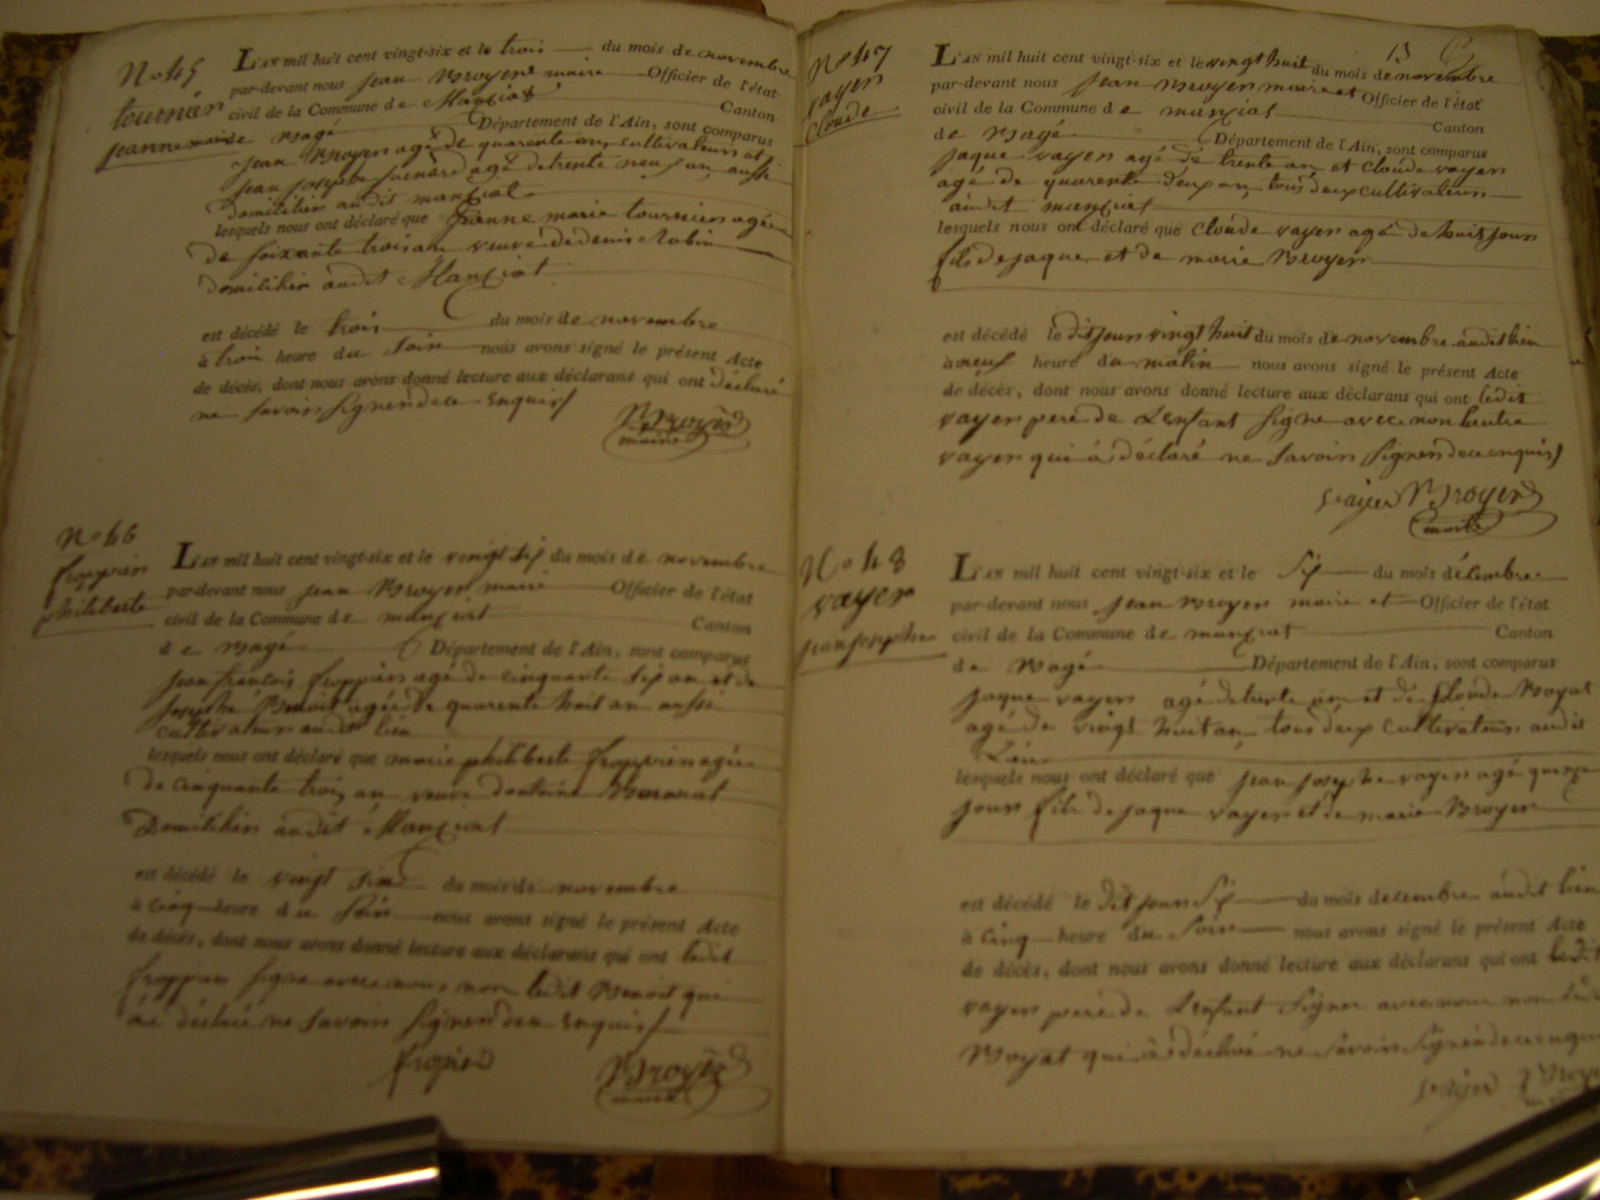 N.o 45
tournier
jeanne marie
L'AN mil huit cent vingt-six et le trois du mois de novembre
par-devant nous jean Broyer maire Officier de l'état
civil de la Commune de Manziat Canton
de Bagé Département de l'Ain, sont comparus
jean Broyer agé de quarente ans cultivateurs et
jean joseph agé de trente neuf an aussi
domicilier audit manziat
lesquels nous ont déclaré que jeanne marie tournier agée
de soixante trois an veuve de denis Robin
domicilier audit Manziat
est décédé le trois du mois de novembre
à trois heure du soir nous avons signé le présent Acte
de décès, dont nous avons donné lecture aux déclarans qui ont déclaré
ne savoir signer de ce enquis
Broyer
maire
N.o 46
froppier
philiberte
L'AN mil huit cent vingt-six et le vingt six du mois de novembre
par-devant nous jean Broyer maire Officier de l'état
civil de la Commune de manziat Canton
de Bagé Département de l'Ain, sont comparus
jean francois froppier agé de cinquante six an et de
joseph Benoit agée de quarente huit an aussi
cultivateur audit lieu
lesquels nous ont déclaré que marie philiberte froppier agée
de cinquante trois an veuve dantoine
Domicilier audit Manziat
est décédé le vingt du mois de novembre
à cinq heure du soir nous avons signé le présent Acte
de décès, dont nous avons donné lecture aux déclarans qui ont ledit
froppier signe avec nous non ledit Benoit qui
a déclaré ne savoir signer de ce enquis
fropier Broyer
maire
13
N.o 47
vayer
cloude
L'AN mil huit cent vingt-six et le vingt huit du mois de novembre
par-devant nous jean Broyer maire et Officier de l'état
civil de la Commune de manziat Canton
de Bagé Département de l'Ain, sont comparus
jaque vayer agé de trente an et cloude vayer
agé de quarente deux an tous deux cultivateur
audit manziat
lesquels nous ont déclaré que cloude vayer agé de huit jour
fils de jaque et de marie Broyer
est décédé le dit jour vingt huit du mois de novembre audit lieu
à neuf heure du matin nous avons signé le présent Acte
de décès, dont nous avons donné lecture aux déclarans qui ont ledit
vayer pere de Lenfant signe avec non lautre
vayer qui à déclaré ne savoir signer de ce enquis
vayer Broyer
maire
N.o 48
vayer
jean joseph
L'AN mil huit cent vingt-six et le six du mois décembre
par-devant nous jean Broyer maire et Officier de l'état
civil de la Commune de manziat Canton
de Bagé Département de l'Ain, sont comparus
jaque vayer agé de trente an et de Cloude Boyat
agé de vingt huit an tous deux cultivateur audit
Lieu
lesquels nous ont déclaré que jean joseph vayer agé quinze
jour fils de jaque vayer et de marie Broyer
est décédé le dit jour six du mois decembre audit lieu
à cinq heure du soir nous avons signé le présent Acte
de décès, dont nous avons donné lecture aux déclarans qui ont ledit
vayer pere de Lenfant signer avec nous non
Boyat qui à déclaré ne savoir signer de ce
vayer